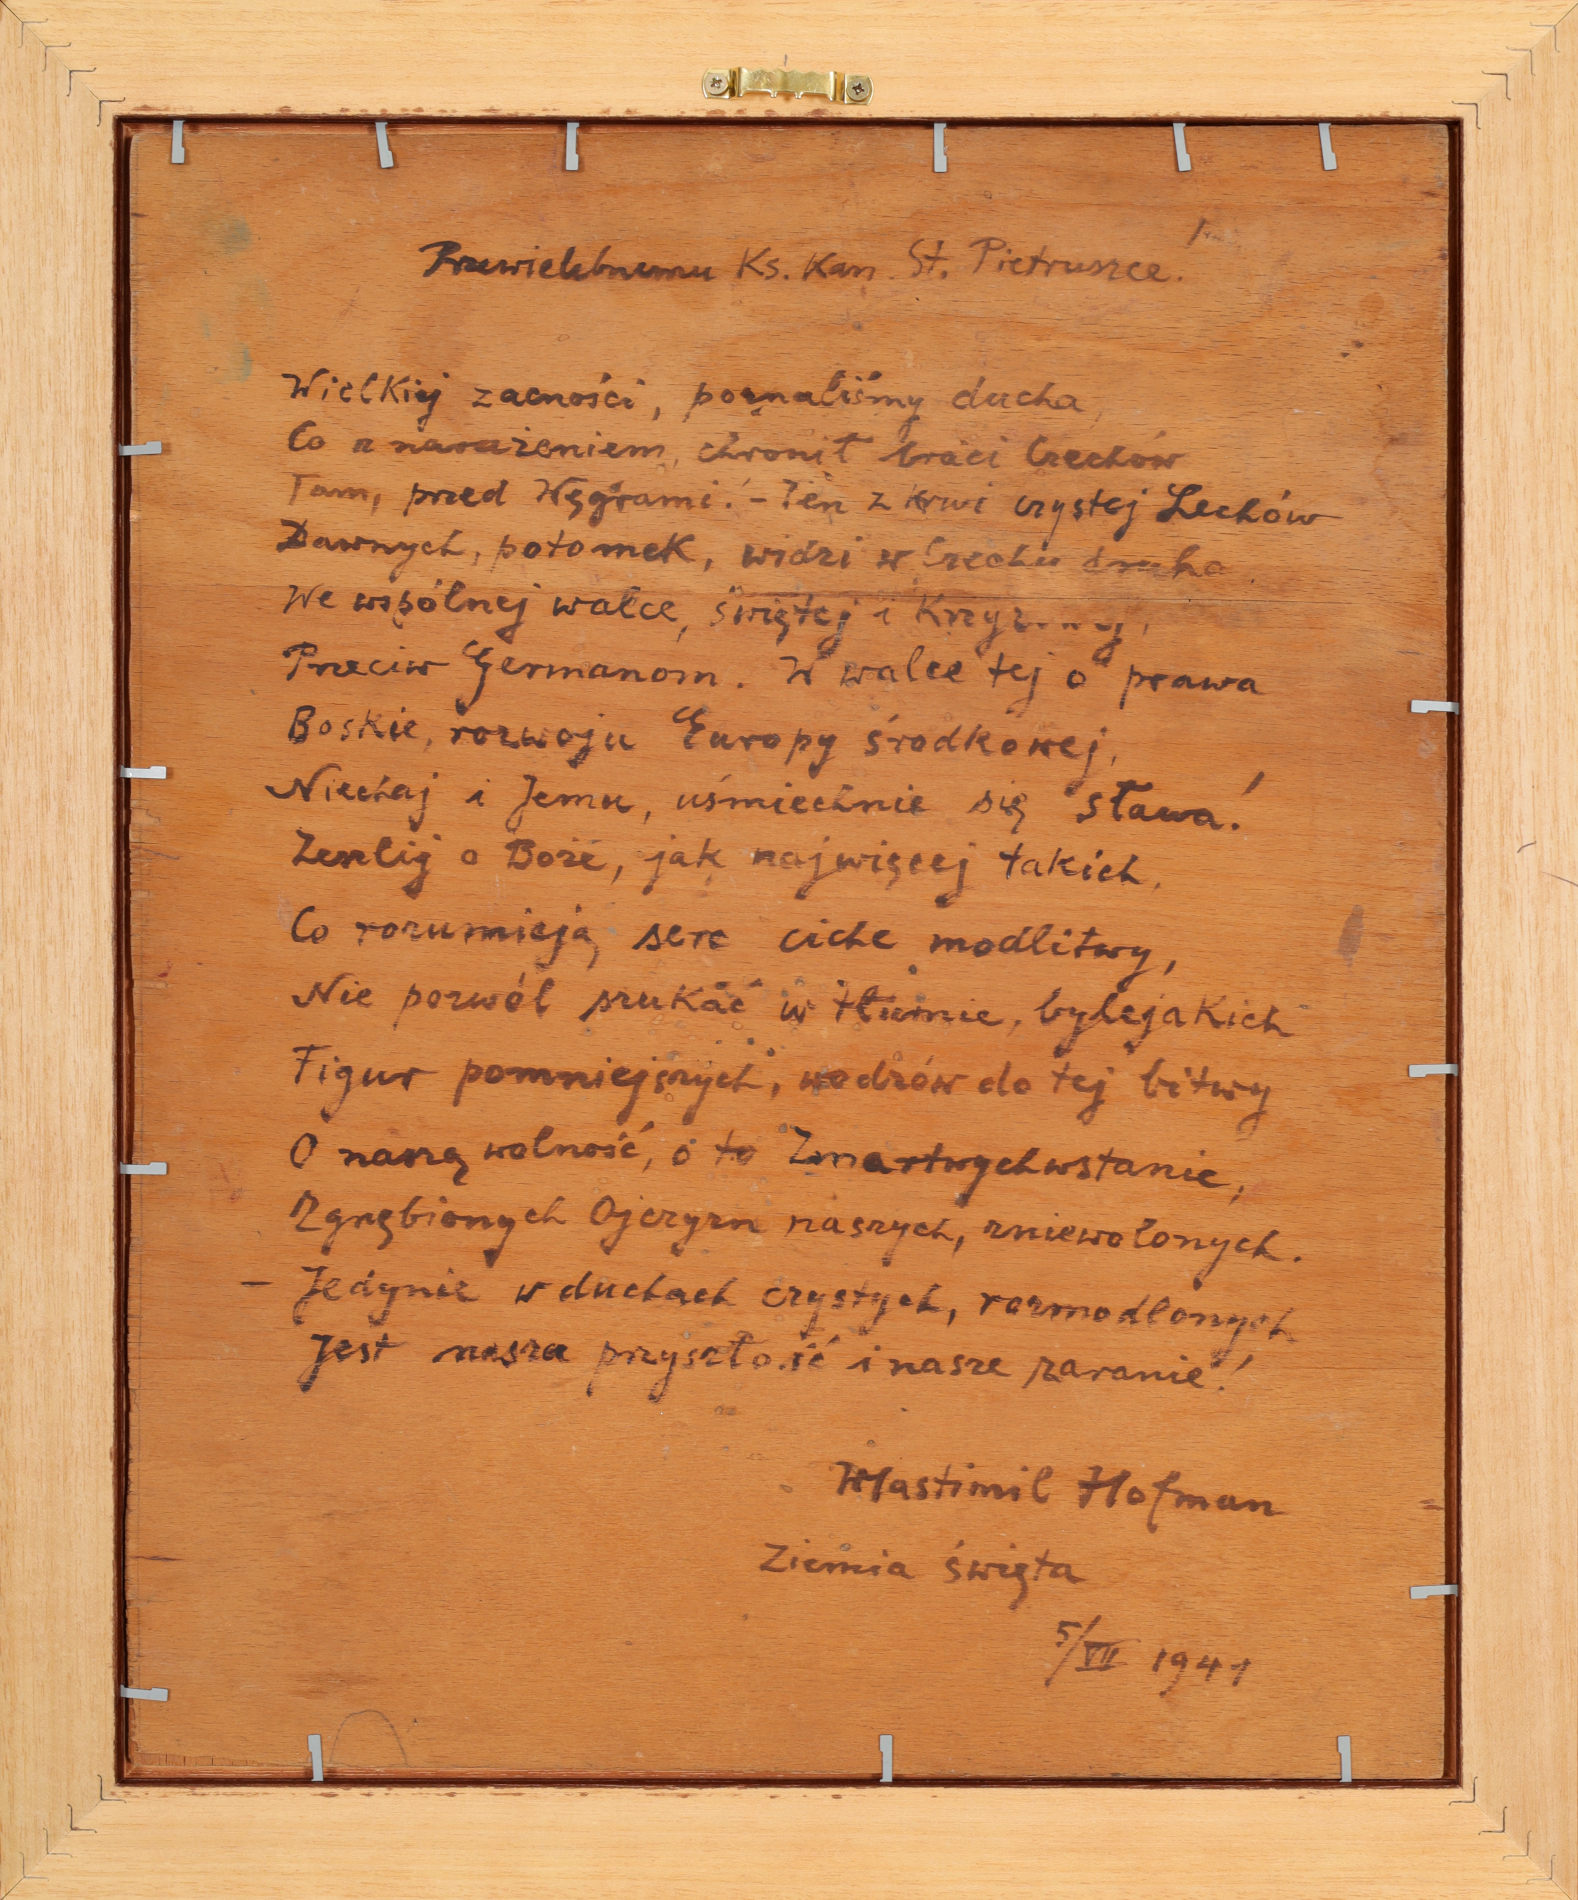 Przewielebnemu Ks. Kan. St. Pietruszce!
Wielkiej zacności, poznaliśmy ducha,
Co z narażeniem, chronił braci Czechów
Tam, przed Węgrami! - Ten z krwi czystej Lechów
Dawnych, potomek, widzi w Czechu druha.
We wspólnej walce, świętej i
Przeciw Germanom. W walce tej o prawa
Boskie, rozwoju Europy środkowej,
Niechaj i Jemu, uśmiechnie się sława!
Zeszlij o Boże, jak najwięcej takich,
Co rozumieją serc ciche modlitwy,
Nie pozwól szukać w tłumie, bylejakich
Figur pomniejszych, wodzów do tej bitwy
O naszą wolność, o to Zmartwychwstanie,
Zgnębionych Ojczyzn naszych, zniewolonych.
- Jedynie w duchach czystych, rozmodlonych
Jest nasza przyszłość i nasze zaranie!
Wlastimil Hofman
Ziemia święta
5/VII 1941